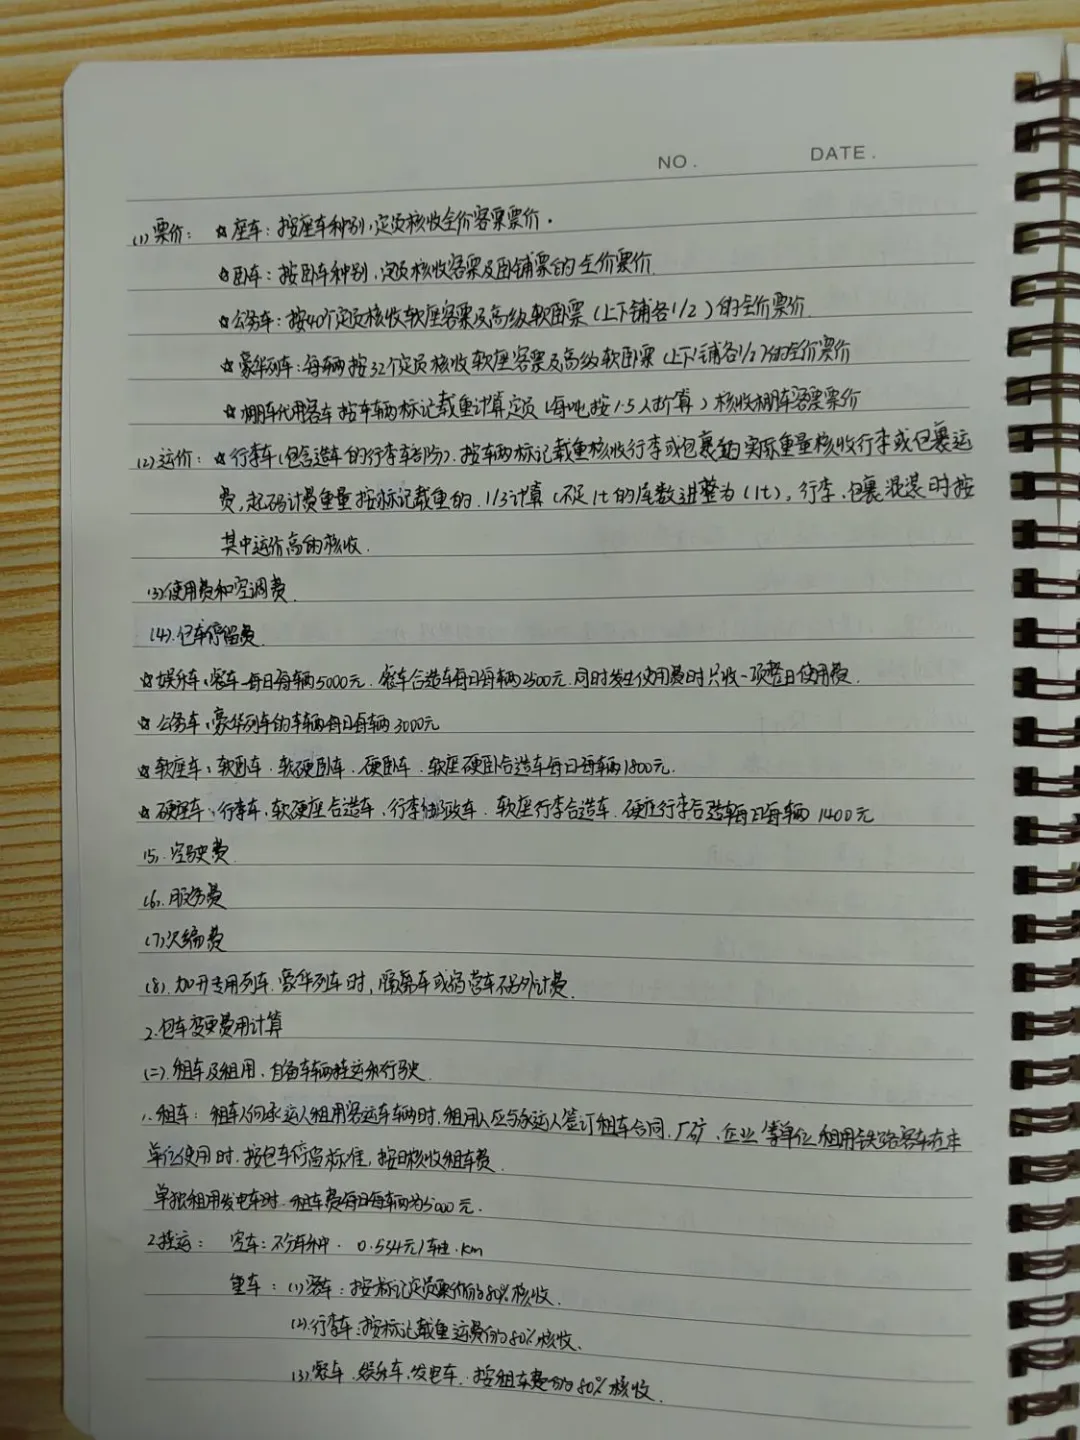 NO. DATE.
(1)票价: ☆座车:按座车种别,定员核收全价客票票价.
☆卧车:按卧车种别,定员核收客票及卧铺票的全价票价
☆公务车:按40个定员核收软座客票及高级软卧票(上下铺各1/2)的全价票价
☆豪华列车:每辆按32个定员核收软座客票及高级软卧票(上下铺各1/2)的全价票价
☆棚车代用客车 按车辆标记载重计算定员(每吨按1.5人折算)核收棚车客票票价
(2)运价: ☆行李车(包含造车的行李车部分).按车辆标记载重核收行李或包裹的实际重量核收行李或包裹运
费,起码计费重量按标记载重的.1/3计算(不足1t的尾数进整为(1t),行李.包裹混装时按
其中运价高的核收.
(3)使用费和空调费.
(4).包车停留费.
☆娱乐车、餐车每日每辆5000元.餐车合造车每日每辆2500元.同时发生使用费时只收一项整日使用费.
☆公务车、豪华列车的车辆每日每辆3000元
☆软座车、软卧车.软硬卧车.硬卧车.软座硬卧合造车每日每辆1800元.
☆硬座车、行李车、软硬座合造车、行李邮政车.软座行李合造车.硬座行李合造车每日每辆1400元
(5).空驶费.
(6).服务费
(7)欠编费
(8).加开专用列车.豪华列车时,隔离车或宿营车不另外计费.
2.包车变更费用计算
(二).租车及租用、自备车辆挂运和行驶.
1.租车:租车人向承运人租用客运车辆时,租用人应与承运人签订租车合同.厂矿、企业等单位租用铁路客车在本
单位使用时.按包车停留标准,按日核收租车费.
单独租用发电车时.租车费每日每辆为5000元.
2.挂运: 空车:不分车种. 0.534元/车轴.km
重车:(1)客车:按标记定员票价的80%核收.
(2)行李车:按标记载重运费的80%核收.
(3)餐车.娱乐车、发电车.按租车费的80%核收.